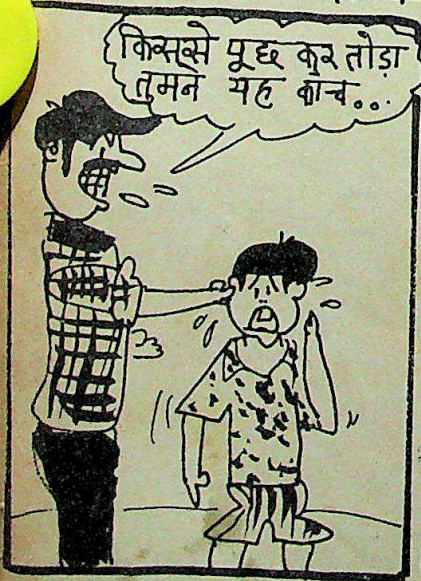 किससे पूछ कर तोड़ा
तुमने यह काँच...